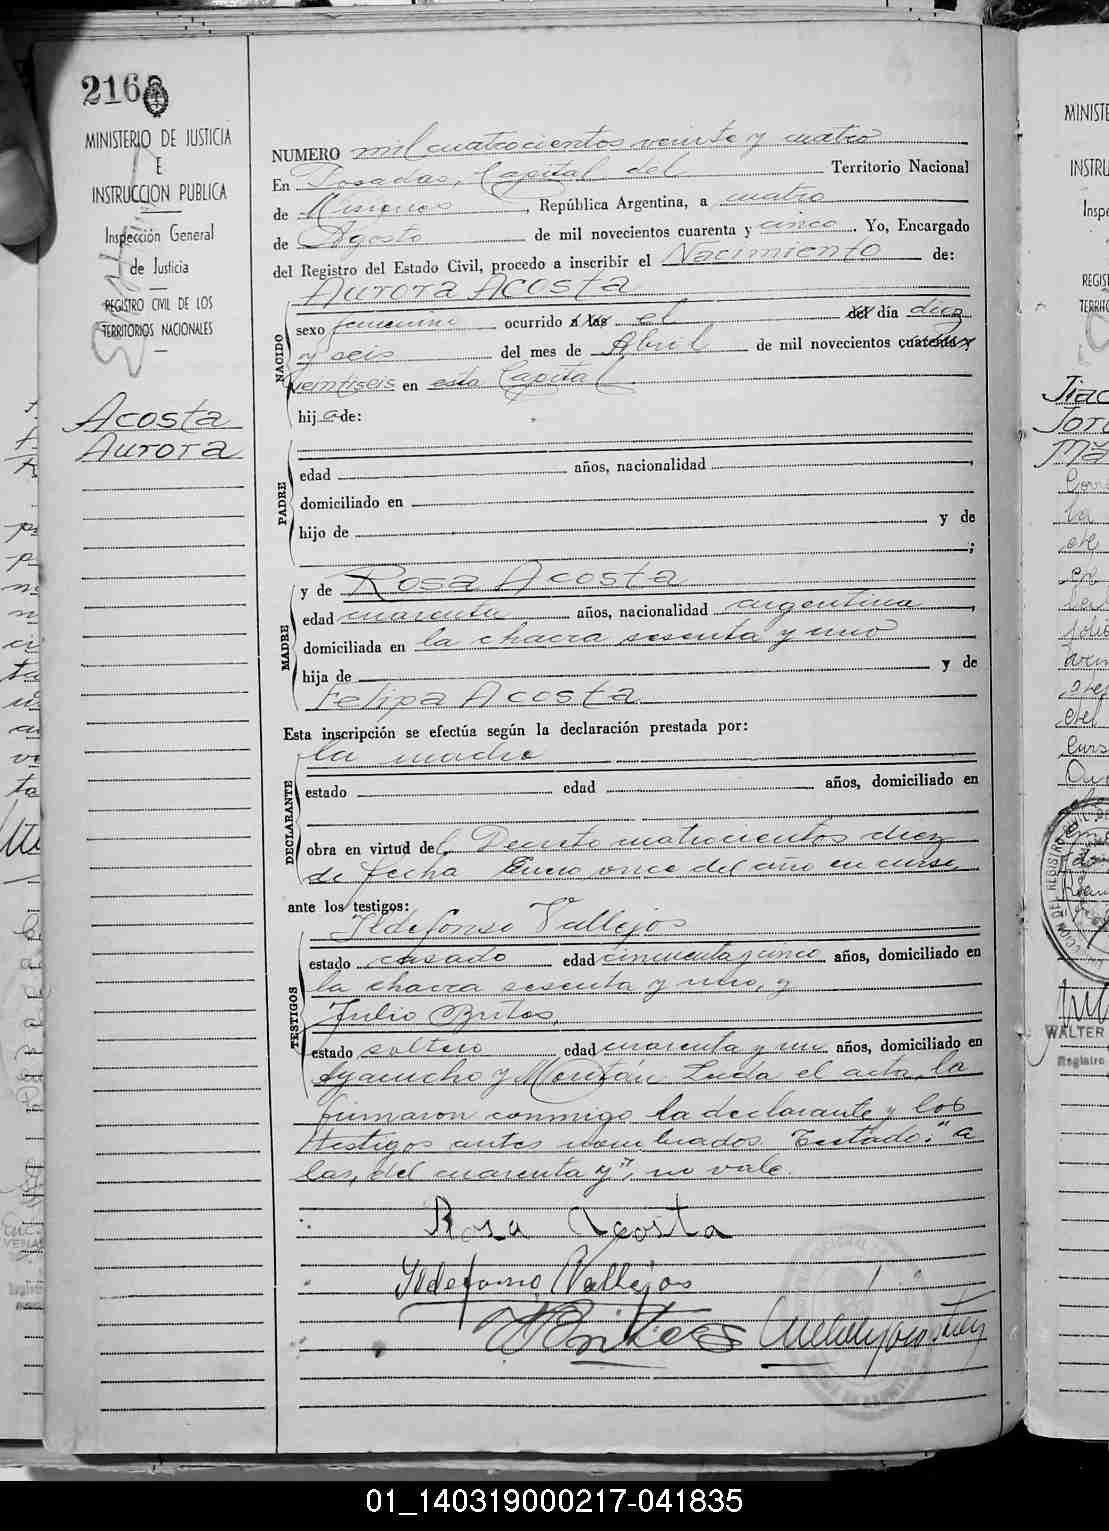 2168
MINISTERIO DE JUSTICIA
E
INSTRUCCION PUBLICA
Inspección General
de Justicia
REGISTRO CIVIL DE LOS
TERRITORIOS NACIONALES
Acosta
Aurora
NUMERO mil cuatrocientos veinte y cuatro
En Posadas, Capital del Territorio Nacional
de Misiones, República Argentina, a cuatro
de Agosto de mil novecientos cuarenta y cinco. Yo, Encargado
del Registro del Estado Civil, procedo a inscribir el Nacimiento de:
NACIDO
Aurora Acosta
sexo femenino ocurrido a las el del día diez
y seis del mes de Abril de mil novecientos cuarenta y
veintiseis en esta Capital
hija de:
PADRE
edad años, nacionalidad ,
domiciliado en
hijo de y de
;
MADRE
y de Rosa Acosta
edad cuarenta años, nacionalidad argentina,
domiciliada en la chacra sesenta y uno
hija de y de
Felipa Acosta
Esta inscripción se efectúa según la declaración prestada por:
DECLARANTE
la madre
estado edad años, domiciliado en
obra en virtud del Decreto cuatrocientos diez
de fecha Enero once del año en curso,
ante los testigos:
TESTIGOS
Ildefonso Vallejos
estado casado edad cincuenta y cinco años, domiciliado en
la chacra sesenta y uno, y
Julio Britos,
estado soltero edad cuarenta y un años, domiciliado en
Ayacucho y Leida el acta, la
firmaron conmigo la declarante y los
testigos antes nombrados. Testado: "a
las, del cuarenta y", no vale.
Rosa Acosta
Ildefonso Vallejos
Britos
MINISTE
INSTRU
Inspe
REGIS
TERRITO
WALTER
Registro
01_140319000217-041835